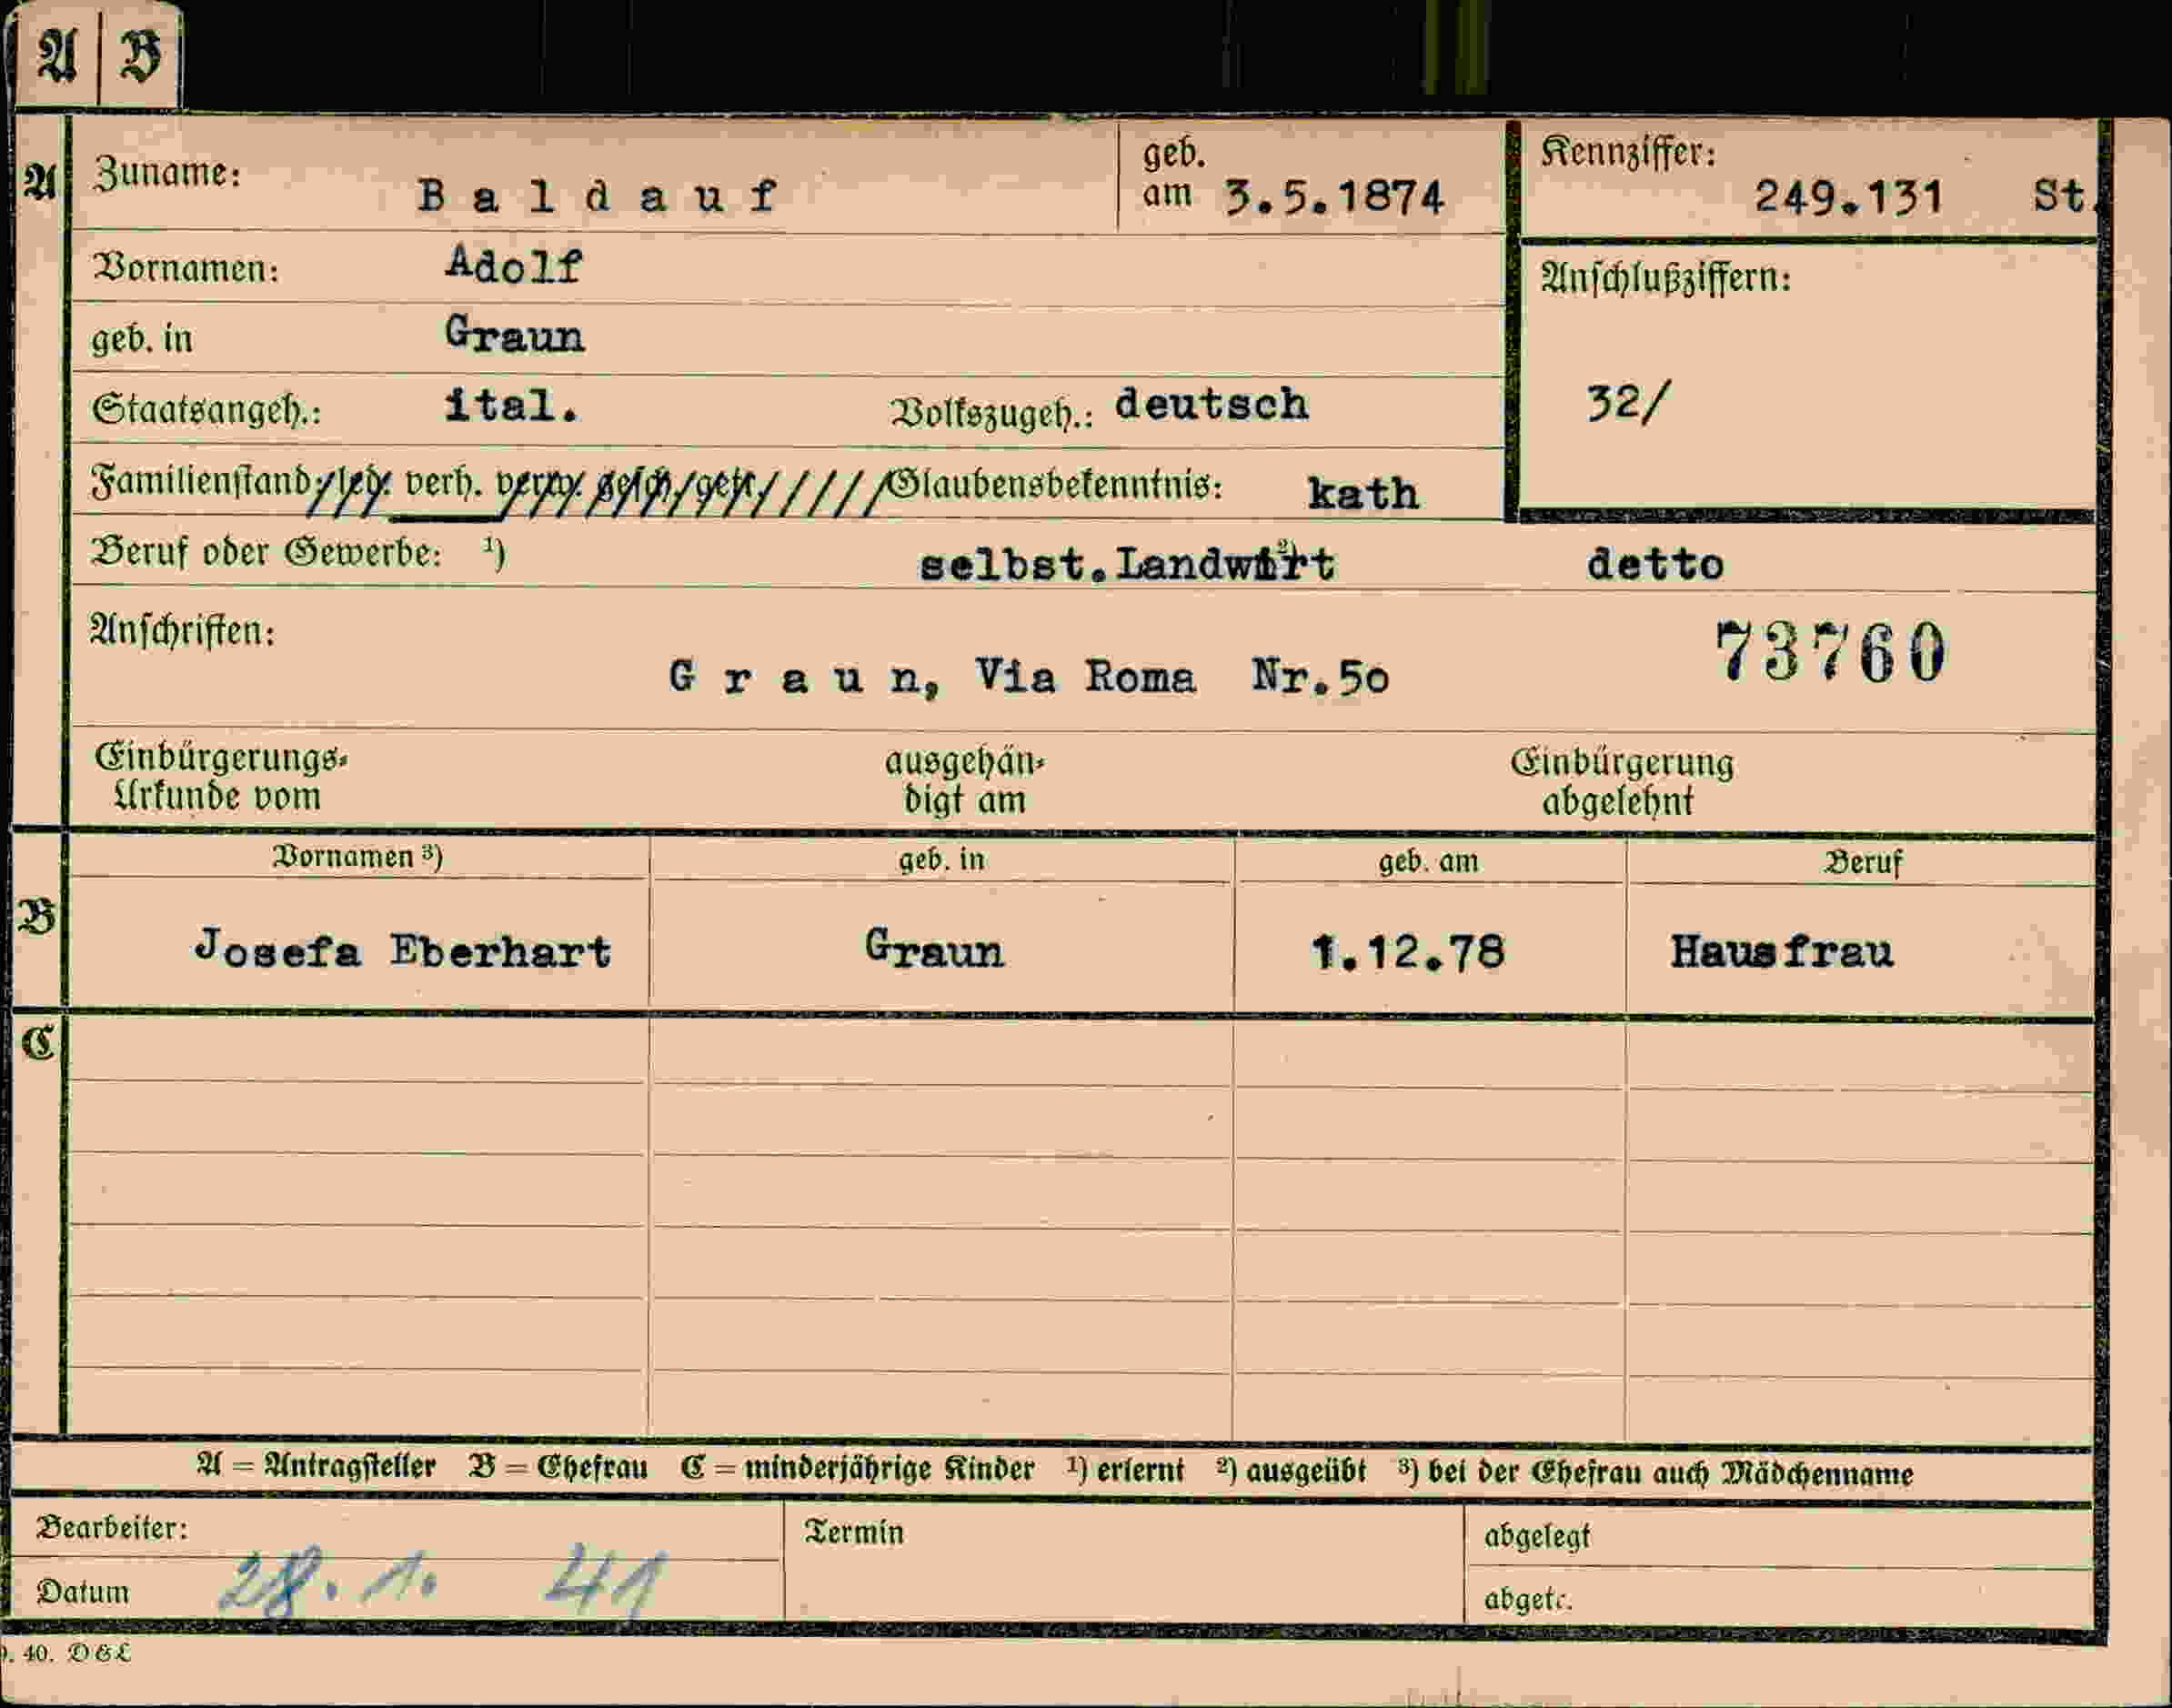 A B
A Zuname: Baldauf geb. am 3.5.1874 Kennziffer: 249.131 St.
Vornamen: Adolf Anschlußziffern:
geb. in Graun
Staatsangeh.: ital. Volkszugeh.: deutsch 32/
Familienstand: led. verh. verw. gesch. getr. Glaubensbekenntnis: kath
Beruf oder Gewerbe: ¹) selbst.Landwirt ²) detto
Anschriften: 73760
Graun, Via Roma Nr.50
Einbürgerungs-Urkunde vom ausgehändigt am Einbürgerung abgelehnt
B Vornamen ³) geb. in geb. am Beruf
Josefa Eberhart Graun 1.12.78 Hausfrau
C
A = Antragsteller B = Ehefrau C = minderjährige Kinder ¹) erlernt ²) ausgeübt ³) bei der Ehefrau auch Mädchenname
Bearbeiter: Termin abgelegt
Datum 28. 1. 41 abgetr.
. 40. DGL